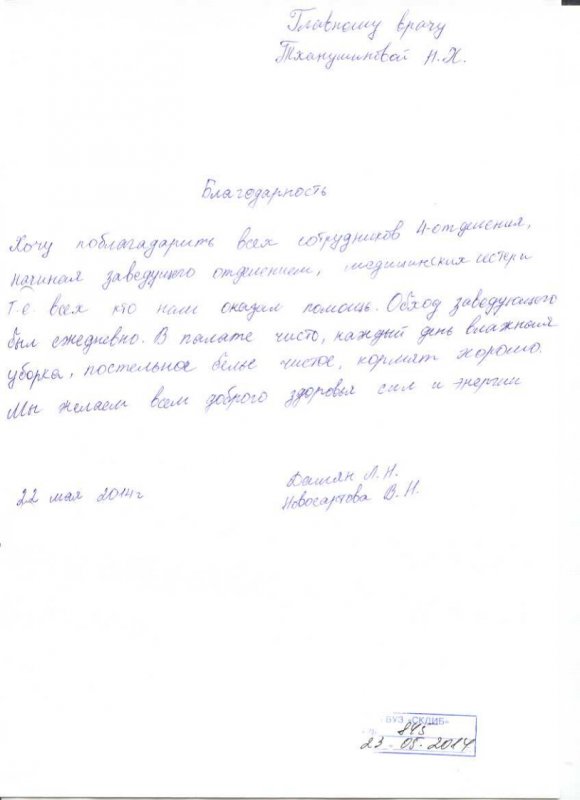 Главному врачу
Тхакушиновой Н.Х.
Благодарность
Хочу поблагадарить всех сотрудников 4-отделения,
начиная заведущего отделением, медицинских сестёр и
т.е. всех кто нам оказал помощь. Обход заведующего
был ежедневно. В палате чисто, каждый день влажная
уборка, постельное бельё чистое, кормят хорошо.
Мы желаем всем доброго здоровья сил и энергии
22 мая 2014г
Н.
В.Н.
БУЗ «СКДИБ»
845
23 05. 2014